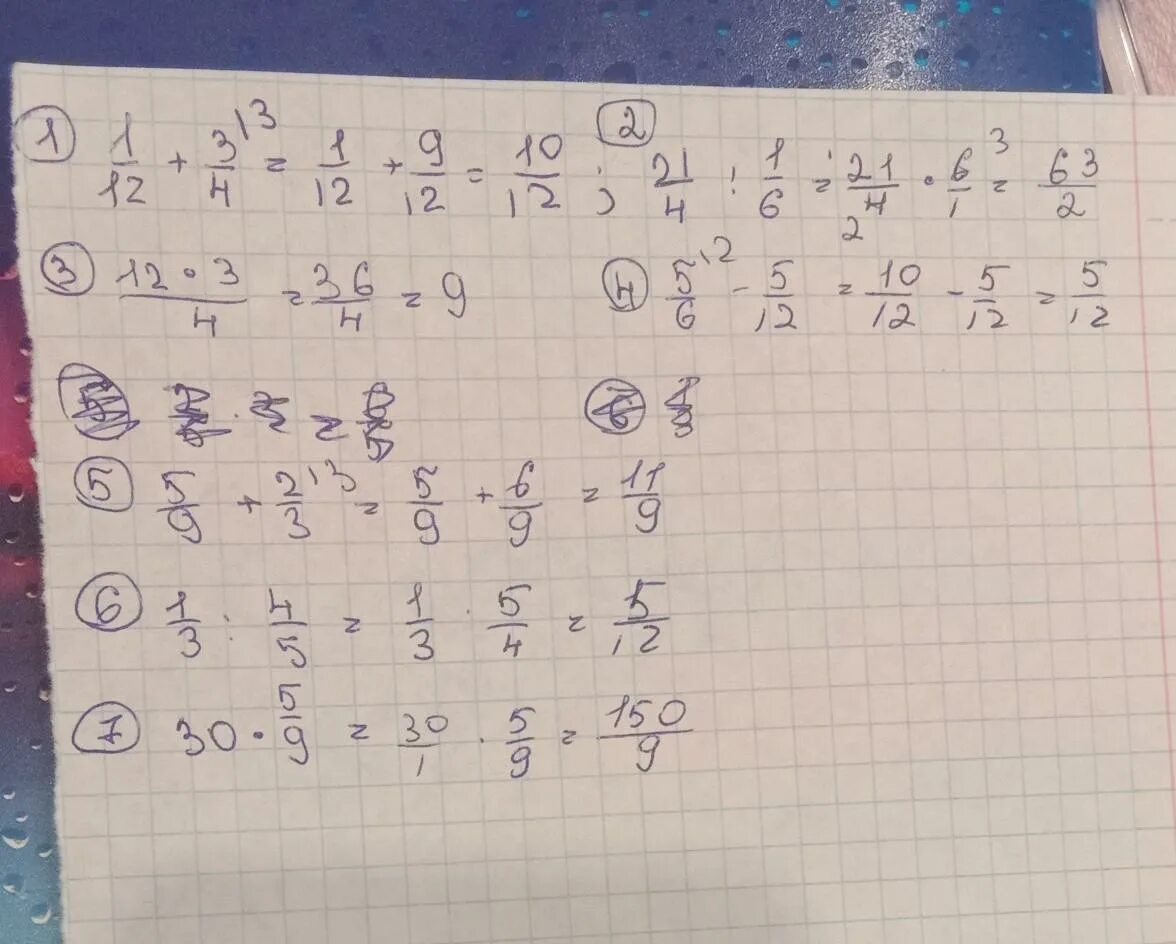 ① 1/12 + 3/4 ¹³ = 1/12 + 9/12 = 10/12 ; ② 21/4 : 1/6 = 21/4 2 · 6/1 3 = 63/2
③ 12·3/4 = 36/4 = 9 ④ 5/6 ¹² - 5/12 = 10/12 - 5/12 = 5/12
⑤ 5/9 + 2/3 ¹³ = 5/9 + 6/9 = 11/9
⑥ 1/3 : 4/5 = 1/3 · 5/4 = 5/12
⑦ 30 · 5/9 = 30/1 · 5/9 = 150/9